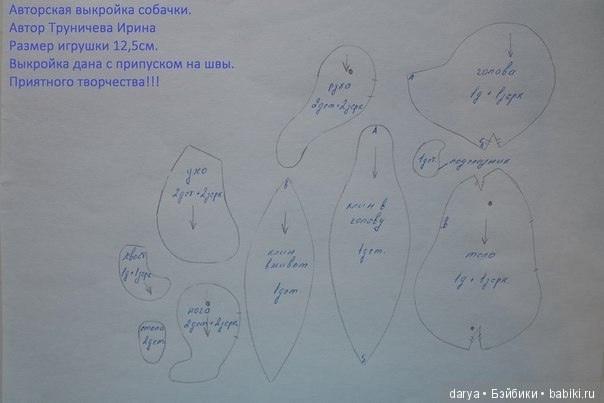 Авторская выкройка собачки.
Автор Труничева Ирина
Размер игрушки 12,5см.
Выкройка дана с припуском на швы.
Приятного творчества!!!
рука
2дет+2зерк
А
голова
1д + 1зерк
Б
1дет.
подглазник
ухо
2дет+2зерк
В
клин
в живот
1дет
А
клин в
голову
1дет.
Б
Б
В
тело
1д + 1зерк.
хвост
1д+1зерк
нога
2дет+2зерк
стопа
2дет.
darya • Бэйбики • babiki.ru